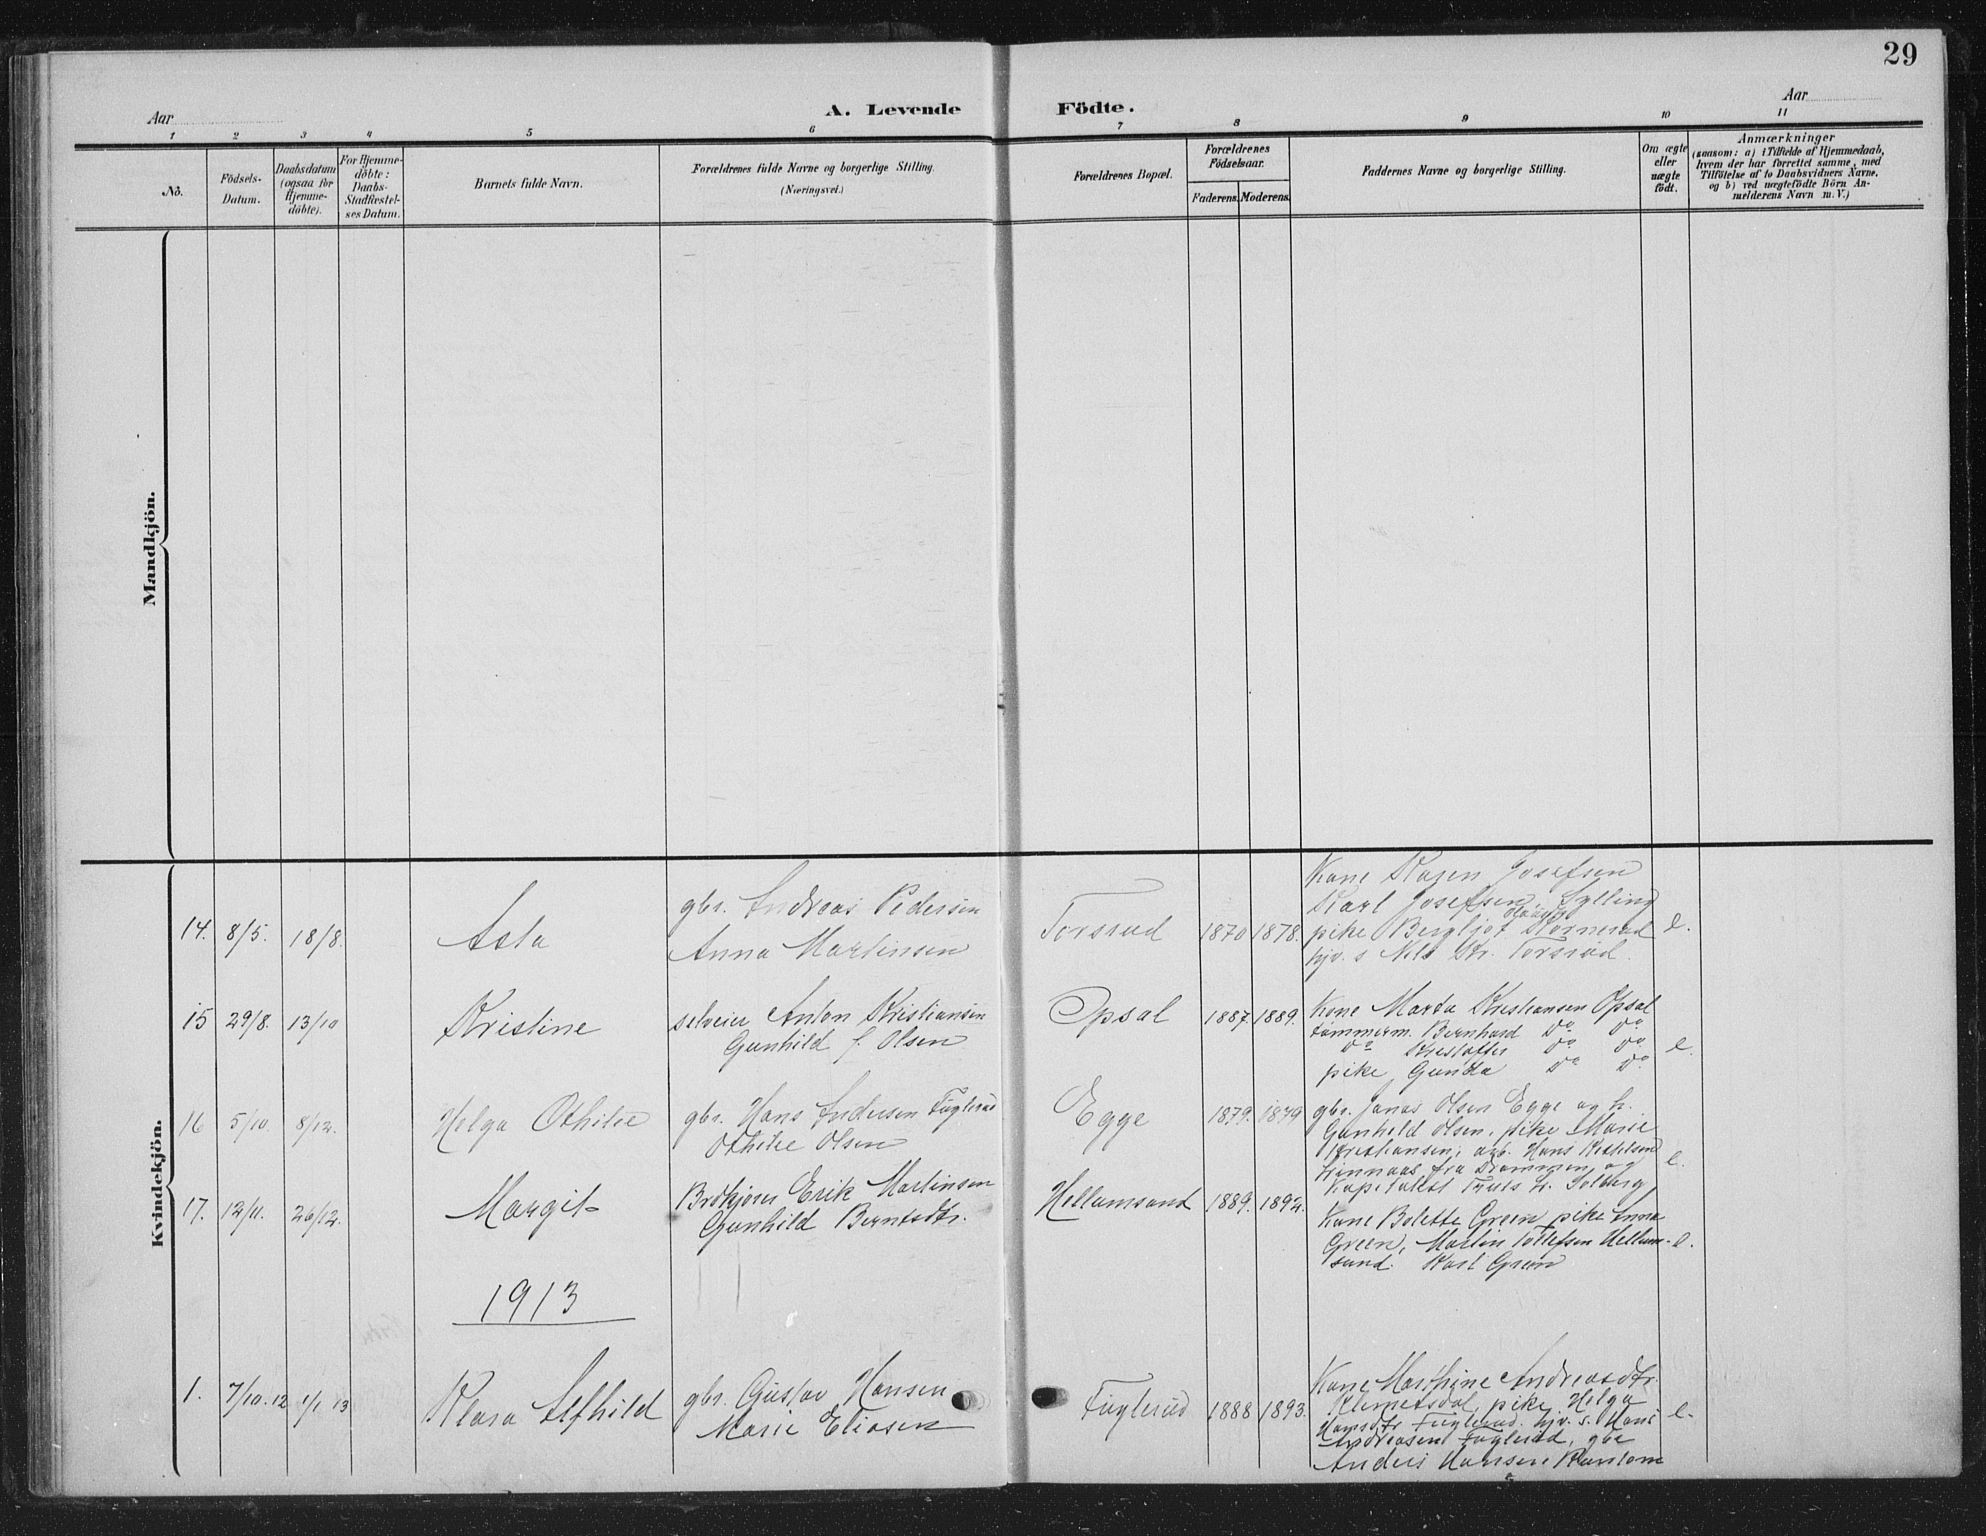 29
A. Levende Födte.
Aar
Aar
1 2 3 4 5 6 7 8 9 10 11
No.
Födsels-
Datum.
Daabsdatum
(ogsaa för
Hjemme-
döbte).
For Hjemme-
döbte:
Daabs-
Stadfæstel-
ses Datum.
Barnets fulde Navn.
Forældrenes fulde Navne og borgerlige Stilling.
(Næringsvei.)
Forældrenes Bopæl.
Forældrenes
Födselsaar.
Faderens. Moderens.
Faddernes Navne og borgerlige Stilling.
Om ægte
eller
uægte
födt.
Anmærkninger
(saasom: a) i Tilfælde af Hjemmedaab,
hvem der har forrettet samme, med
Tilföielse af to Daabsvidners Navne,
og b) ved uægtefödte Börn An-
melderens Navn m.V.)
Mandkjön.
Kvindekjön.
14. 8/5. 18/8. Asta
gbr. Andreas Pedersen
Anna Martinsen
Torsrud 1870 1878.
Kone Kagen Josefsen
Karl Josefsen, Sylling
pike Bergljot Kornerud
hjv. s Nils Kr. Torsrud.
e.
15 29/8. 13/10 Kristine
selveier Anton Kristiansen
Gunhild f. Olsen
Opsal 1887. 1889.
Kone Marta Kristiansen Opsal
tømmerm. Bernhard Do Do
Do Kristoffer Do Do
pike Gunda Do Do
e.
16 5/10. 8/12. Helga Othilie
gbr. Hans Andersen Fuglerud
Othilie Olsen
Egge 1879. 1879
gbr. Jonas Olsen Egge og h.
Gunhild Olsen, pike Marie
Kristiansen, arb. Hans Kettelsen
fra Drammen og
Kapitalist Truls H. Solberg
e.
17. 12/11. 26/12. Margit
Brdkjører Erik Martinsen
Gunhild Berntsdtr.
Hellumsund 1889. 1892.
Kone Bolette Green, pike Anna
Green, Martin Tollefsen Hellum-
sund. Karl Green
e.
1913
1. 7/10. 12 1/1 13 Klara Alfhild
gbr. Gustav Hansen
Marie Eliasen
Fuglerud 1888 1893.
Kone Marthine Andreasdtr.
Klemetsdal, pike Helga
Hansdtr Fuglerud. hjv. s. Hans
Andreasen Fuglerud, gbr
Anders Hansen
e.